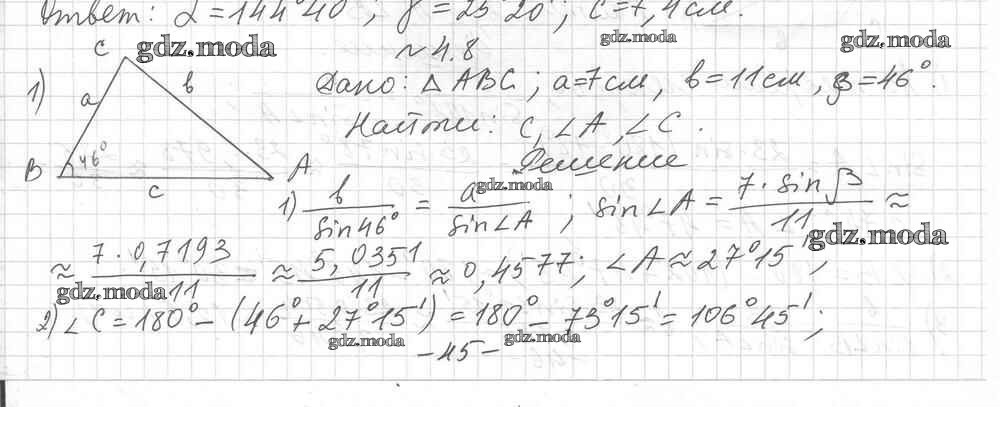 Ответ: α = 144°40'; γ = 25°20'; c = 7,4 см.
gdz.moda gdz.moda gdz.moda
~ 4.8
1) C a b B 46° c A
Дано: △ ABC; a=7см, b=11см, β=46°.
Найти: C, ∠A, ∠C.
Решение
gdz.moda
1) b/sin46° = a/sin∠A; sin∠A = 7·sinβ/11 ≈
gdz.moda
≈ 7·0,7193/11 ≈ 5,0351/11 ≈ 0,4577; ∠A ≈ 27°15';
gdz.moda
2) ∠C = 180° – (46° + 27°15') = 180° – 73°15' = 106°45';
gdz.moda gdz.moda
-45-